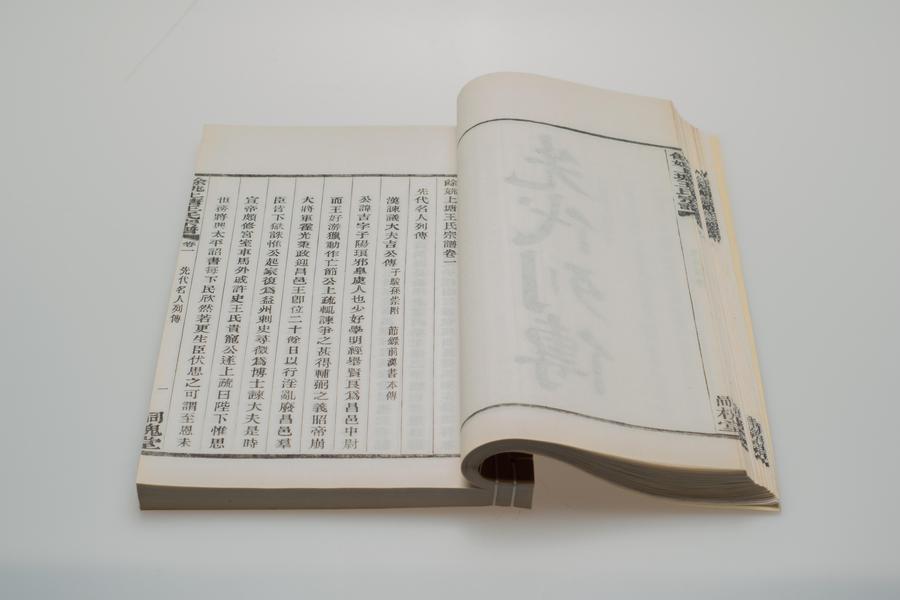 餘姚上塘王氏宗譜卷一
先代名人列傳
漢諫議大夫吉公傳 子駿孫崇附 節錄前漢書本傳
公諱吉字子陽瑯邪臯虞人也少好學明經舉賢良爲昌邑中尉
而王好游獵動作亡節公上疏輒諫爭之甚得輔弼之義昭帝崩
大將軍霍光秉政迎昌邑王卽位二十餘日以行淫亂廢昌邑羣
臣皆下獄誅惟公起家復爲益州刺史尋徵爲博士諫大夫是時
宣帝頗修宮室車馬外戚許史王氏貴寵公遂上疏曰陛下惟思
世務將興太平詔書每下民欣然若更生臣伏思之可謂至恩未
餘姚上塘王氏宗譜 卷一 先代名人列傳 一
先代列傳
餘姚上塘王氏宗譜